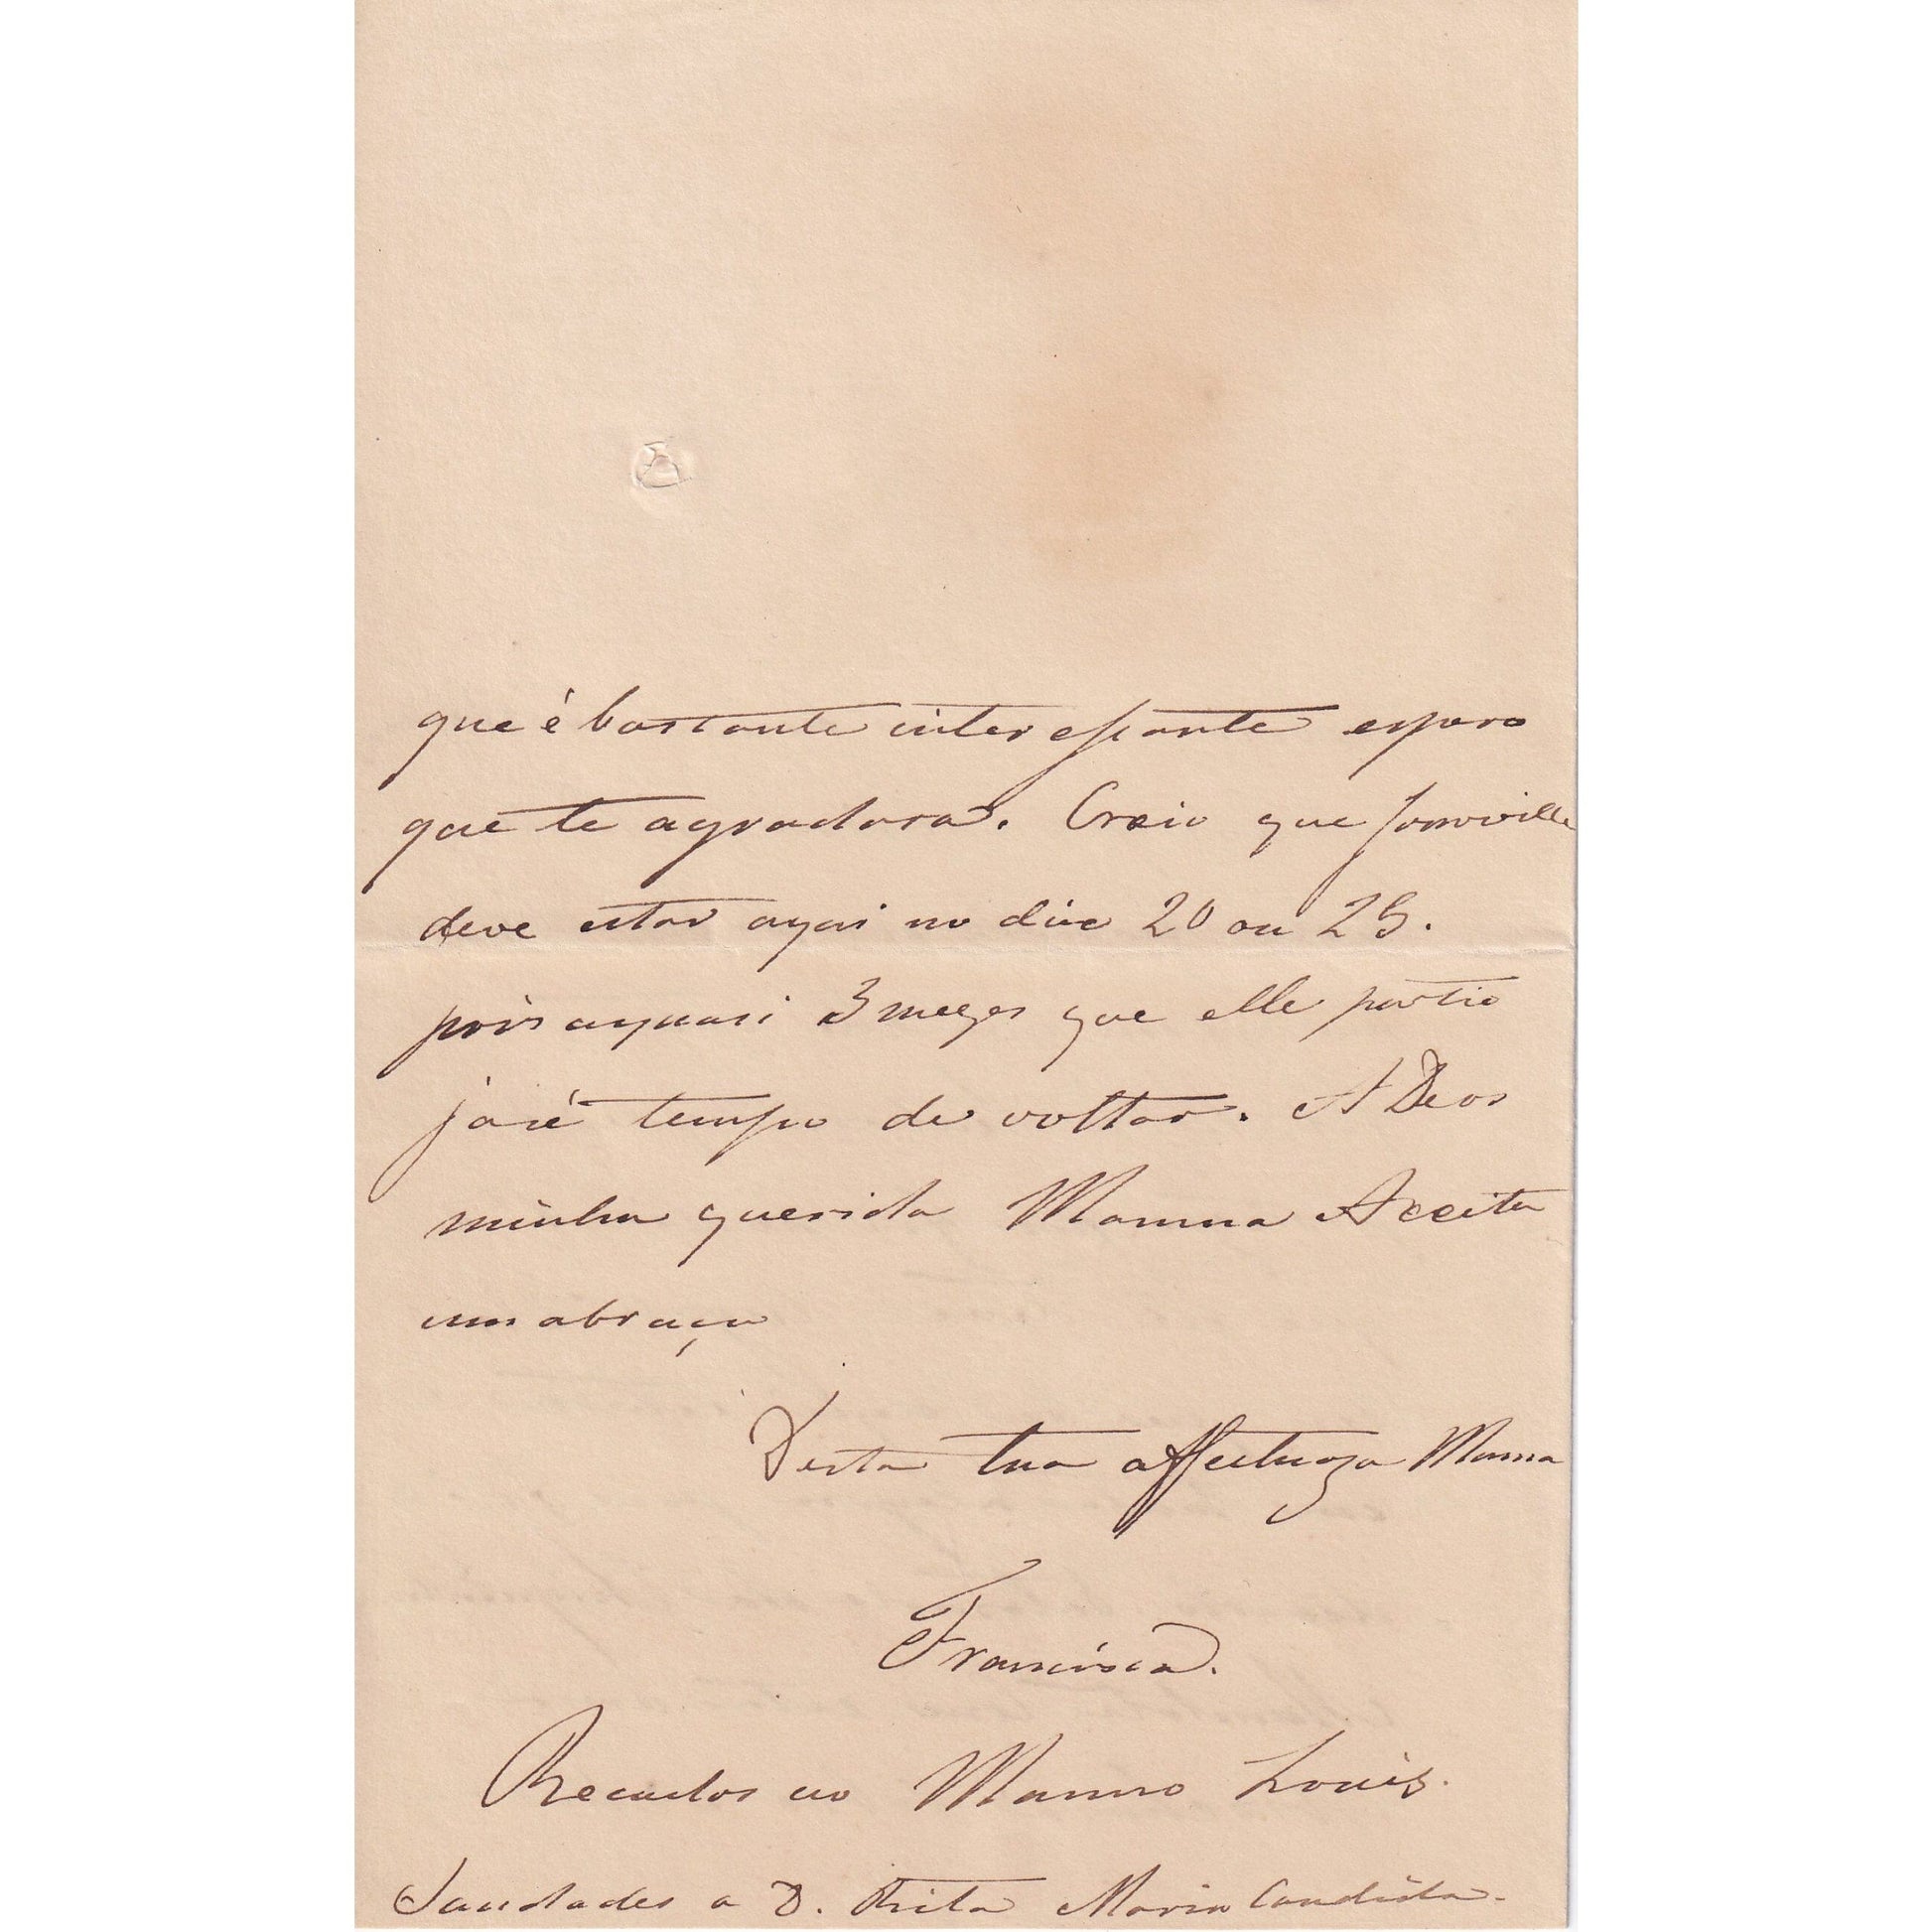 que é bastante interessante espero
que te agradara. Creio que Joinville
deve estar aqui no dia 20 ou 25.
pois a quasi 3 mezes que elle partio
ja é tempo de voltar. A Deos
minha querida Manna Acceita
um abraço
Desta tua affectuoza Manna
Francisca.
Recados ao Manno Louis.
Saudades a D. Rita Maria Candida.